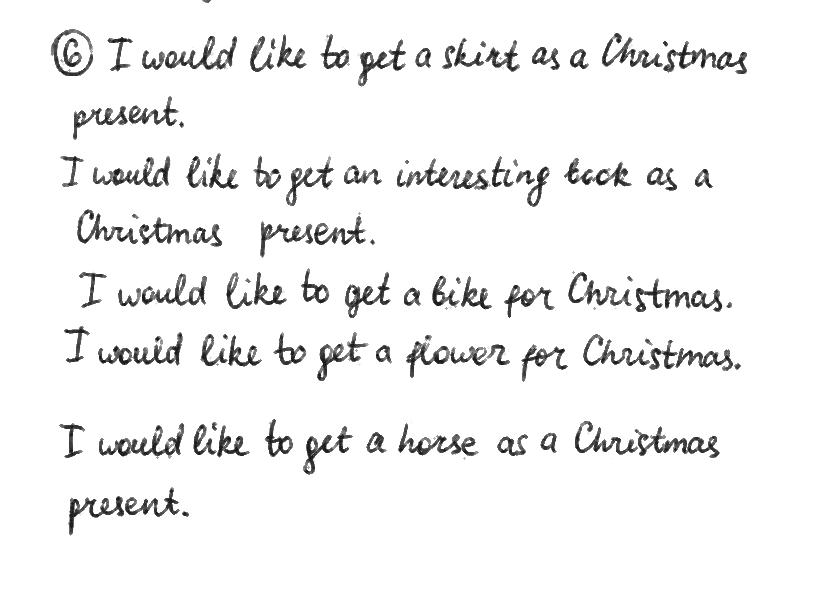 ⑥ I would like to get a skirt as a Christmas
present.
I would like to get an interesting book as a
Christmas present.
I would like to get a bike for Christmas.
I would like to get a flower for Christmas.
I would like to get a horse as a Christmas
present.